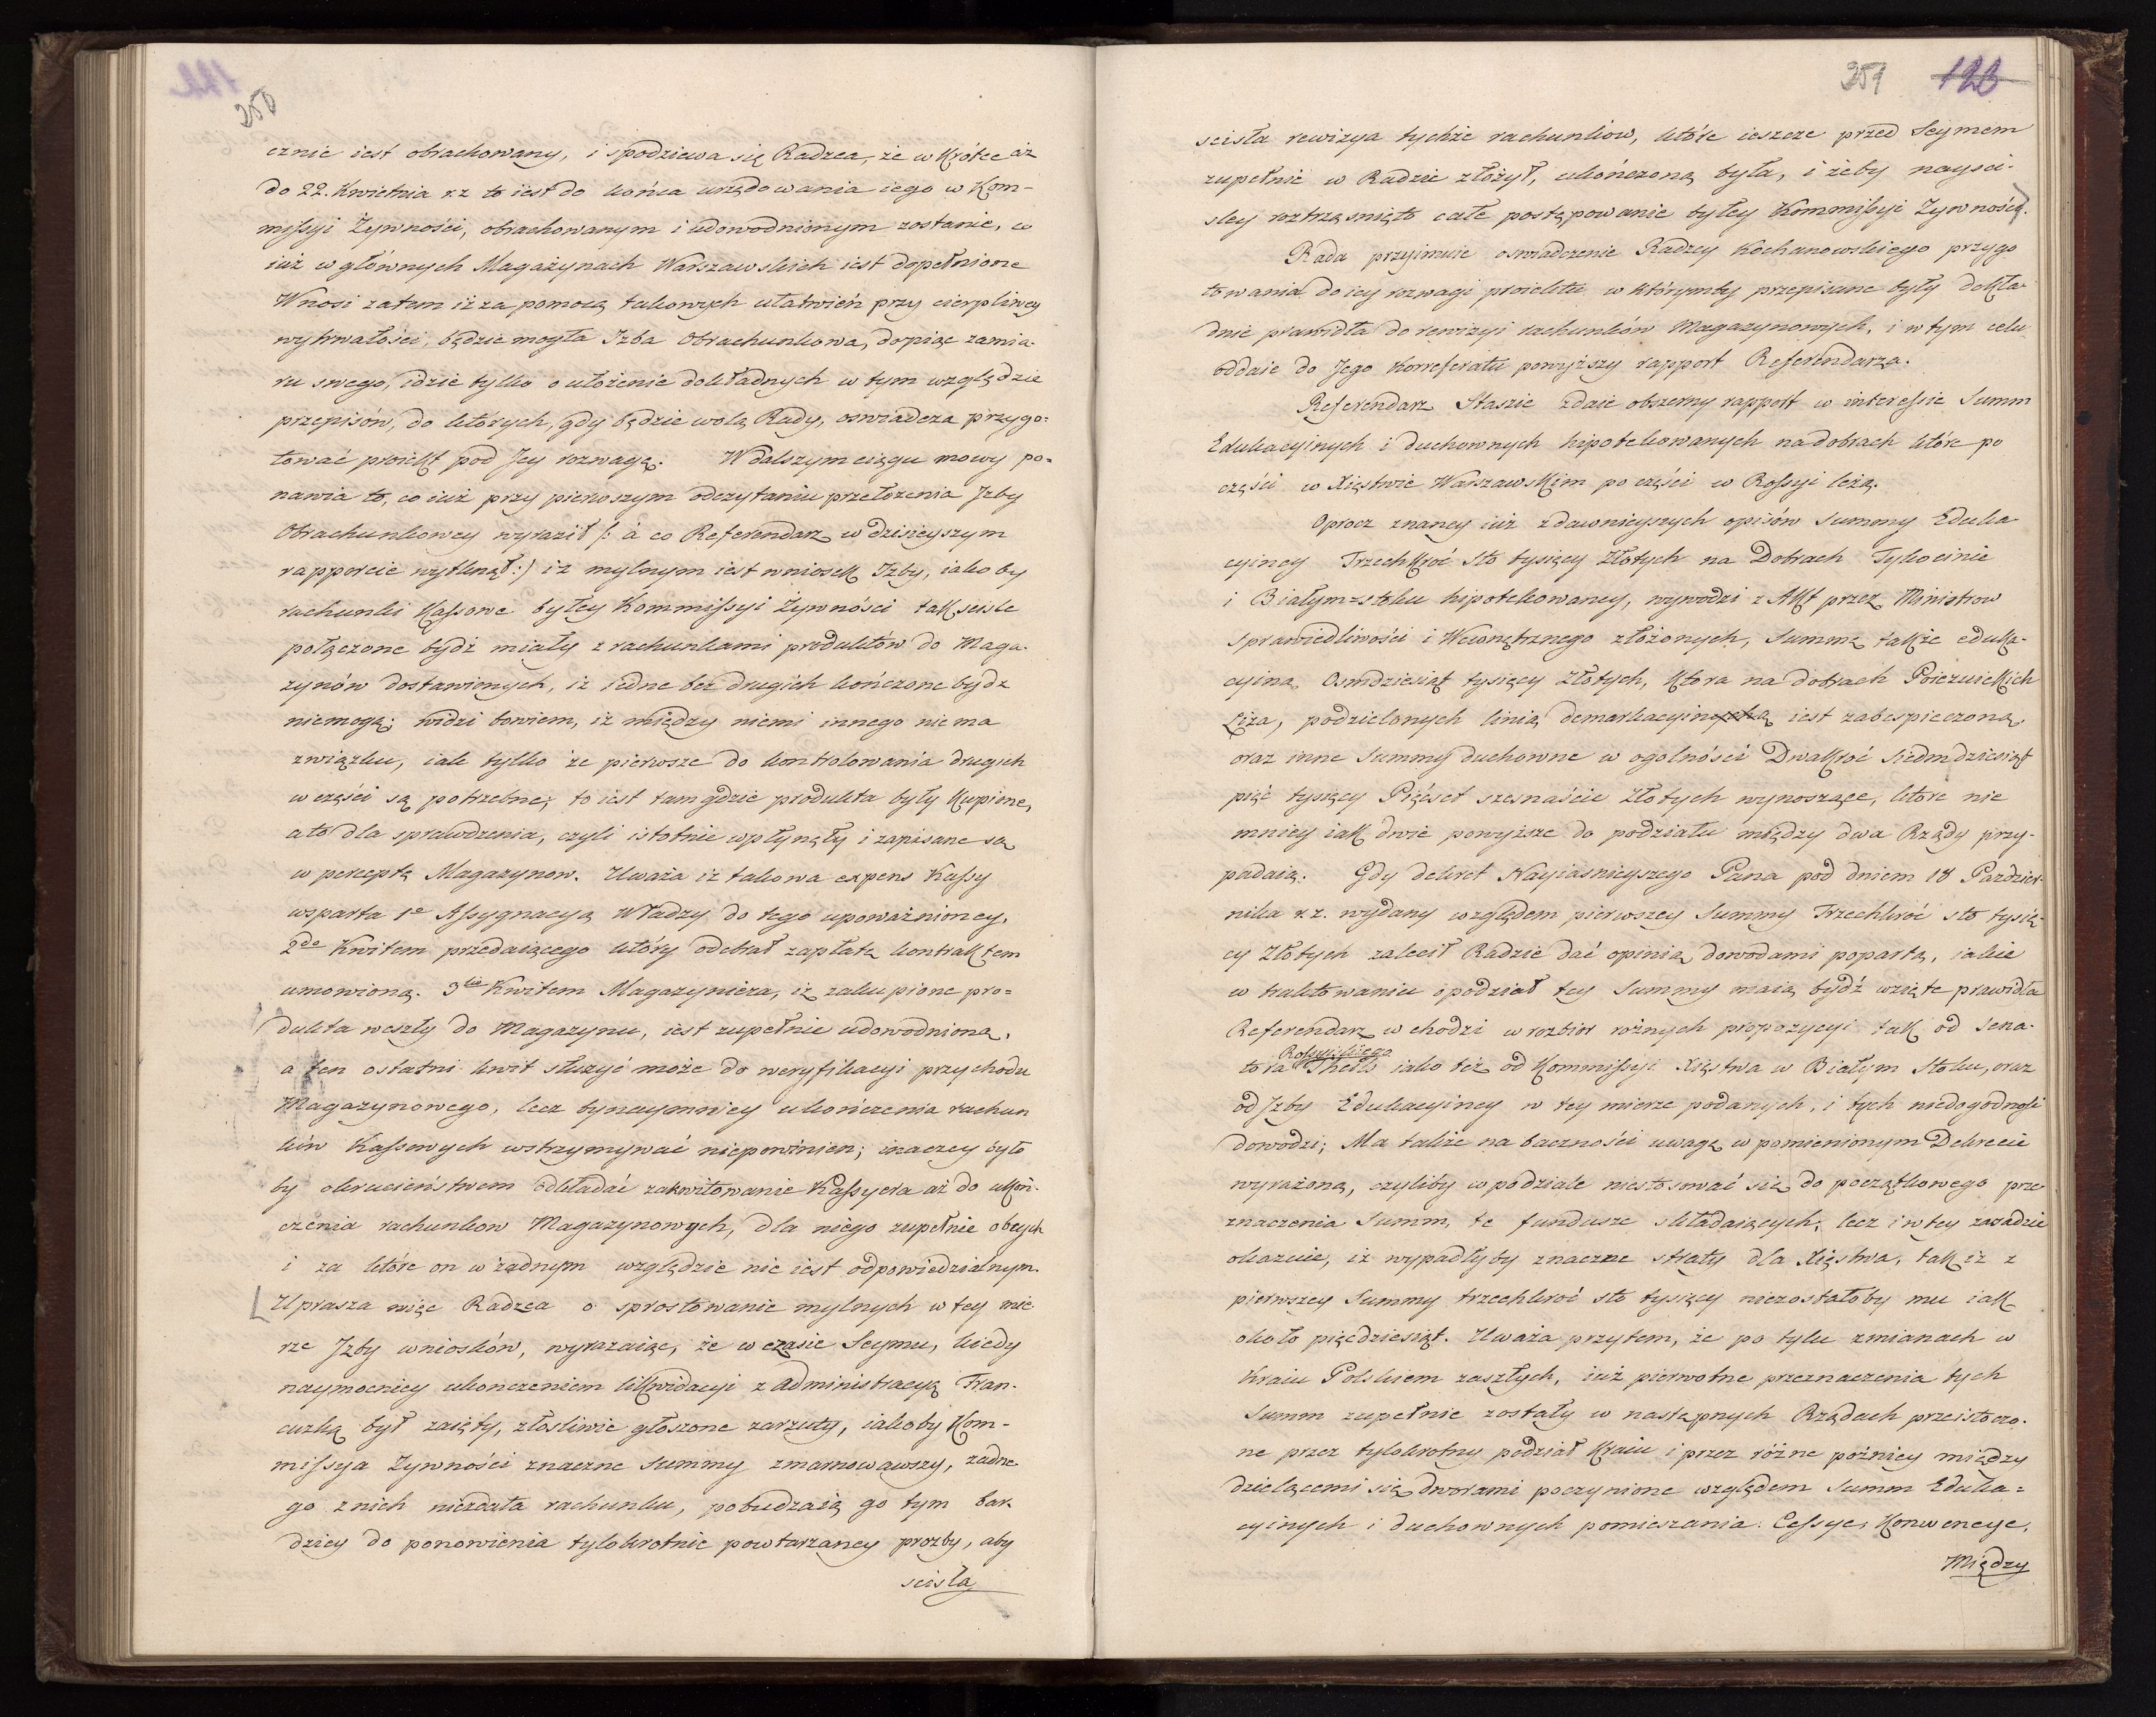 250
cznie iest obrachowany, i spodziewa się Radzca, że w krótce aż
do 22. Kwietnia r.z to iest do końca urzędowania iego w Kom-
missyi Żywności, obrachowanym i udowodnionym zostanie, co
iuż w głównych Magazynach Warszawskich iest dopełnione
Wnosi zatem iż za pomocą takowych ułatwień przy cierpliwey
wytrwałości, będzie mogła Izba Obrachunkowa, dopiąc zamia-
ru swego, idzie tylko o ułożenie dokładnych w tym względzie
przepisów, do których, gdy będzie wolą Rady, oswiadcza przygo-
tować proiekt pod Jey rozwagę. W dalszym ciągu mowy po-
nawia to, co iuż przy pierwszym odczytaniu przełożenia Jzby
Obrachunkowey wyraził /: à co Referendarz w dzisieyszym
rapporcie wytknął :/ iż mylnym iest wniosek Izby, iakoby
rachunki Kassowe byłey Kommissyi Żywności tak scisle
połączone bydź miały z rachunkami produktów do Maga-
zynów dostawionych, iż iedne bez drugich kończone bydz
niemogą; widzi bowiem, iż między niemi innego nie ma
związku, iak tylko że pierwsze do kontrolowania drugich
w części są potrzebne; to iest tam gdzie produkta były kupione,
a to dla sprawdzenia, czyli istotnie wpłynęły i zapisane są
w perceptę Magazynow. Uważa iż takowa expens Kassy
wsparta 1e Assygnacyą Władzy do tego upoważnioney,
2do Kwitem przedaiącego który odebrał zapłatę kontraktem
umowioną. 3tio Kwitem Magazyniera, iż zakupione pro-
dukta weszły do Magazynu, iest zupełnie udowodniona,
a ten ostatni kwit służyć może do weryfikacyi przychodu
Magazynowego, lecz bynaymniey ukończenia rachun
ków Kassowych wstrzymywać niepowinien; inaczey było
by okrucieństwem odkładać zakwitowanie Kassyera aż do ukoń-
czenia rachunkow Magazynowych, dla niego zupełnie obcych
i za które on w żadnym względzie nie iest odpowiedzialnym.
Uprasza więc Radzca o sprostowanie mylnych w tey mie
rze Jzby wniosków, wyrazaiąc, że w czasie Seymu, kiedy
naymocniey ukonczeniem likwidacyi z Administracyą Fran-
cuzką był zaięty, złosliwie głoszone zarzuty, iakoby Kom-
missya Żywności znaczne Summy zmarnowawszy, żadne
go z nich niezdała rachunku, pobudzaią go tym bar
dziey do ponowienia tylokrotnie powtarzaney prozby, aby
scisła
251 123
scisła rewizya tychże rachunkow, które ieszcze przed Seymem
zupełnie w Radzie złożył, ukończoną była, i żeby nayści-
sley roztrząsnięto całe postępowanie byłey Kommissyi Żywności.
Rada przyimuie oswiadczenie Radzcy Kochanowskiego przygo
towania do iey rozwagi proiektu w którymby przepisane były dokła-
dnie prawidła do rewizyi rachunków Magazynowych, i w tym celu
oddaie do Jego Korreferatu powyższy rapport Referendarza.
Referendarz Staszic zdaie obszerny rapport w interessie Summ
Edukacyinych i duchownych hipotekowanych na dobrach które po
części w Xięstwie Warszawskim po części w Rossyi leżą.
Oprocz znaney iuż z dawnieyszych opisów summy Eduka
cyiney Trzechkroć sto tysięcy Złotych na Dobrach Tykocinie
i Białym=stoku hipotekowaney, wywodzi z Akt przez Ministrow
Sprawiedliwości i Wewnętrznego złożonych, Summę także eduka-
cyiną Osmdziesiąt tysięcy Złotych, która na dobrach Poiezuickich
Liza, podzielonych linią demarkacyiną iest zabespieczoną,
oraz inne Summy duchowne w ogolności Dwakroć siedmdziesiąt
pięć tysięcy Pięćset szesnaście Złotych wynoszące, które nie
mniey iak dwie powyższe do podziału między dwa Rządy przy-
padaią. Gdy dekret Nayiasnieyszego Pana pod dniem 18 Pazdzier-
nika r.z. wydany względem pierwszey Summy Trzechkroć sto tysię-
cy Złotych zalecił Radzie dać opinią dowodami popartą, iakie
w traktowaniu o podział tey Summy maią bydź wzięte prawidła
Referendarz wchodzi w rozbior rożnych propozycyi tak od Sena-
Rossyiskiego
tora Theils iako też od Kommissyi Xięstwa w Białym Stoku, oraz
od Jzby Edukacyiney w tey mierze podanych, i tych niedogodność
dowodzi; Ma także na baczności uwagę w pomienionym Dekrecie
wyrażoną, czyliby w podziale niestosować się do początkowego prze-
znaczenia Summ, te fundusze składaiących; lecz i w tey zasadzie
okazuie, iż wypadłyby znaczne straty dla Xięstwa, tak iż z
pierwszey Summy trzechkroć sto tysięcy niezostałoby mu iak
około pięcdziesiąt. Uważa przytem, że po tylu zmianach w
Kraiu Polskiem zaszłych, iuż pierwotne przeznaczenia tych
Summ zupełnie zostały w następnych Rządach przeistoczo-
ne przez tylokrotny podział Kraiu i przez różne pożniey między
dzielącemi się dworami poczynione względem Summ Eduka=
cyinych i duchownych pomieszania. Cessye, Konwencye,
Między